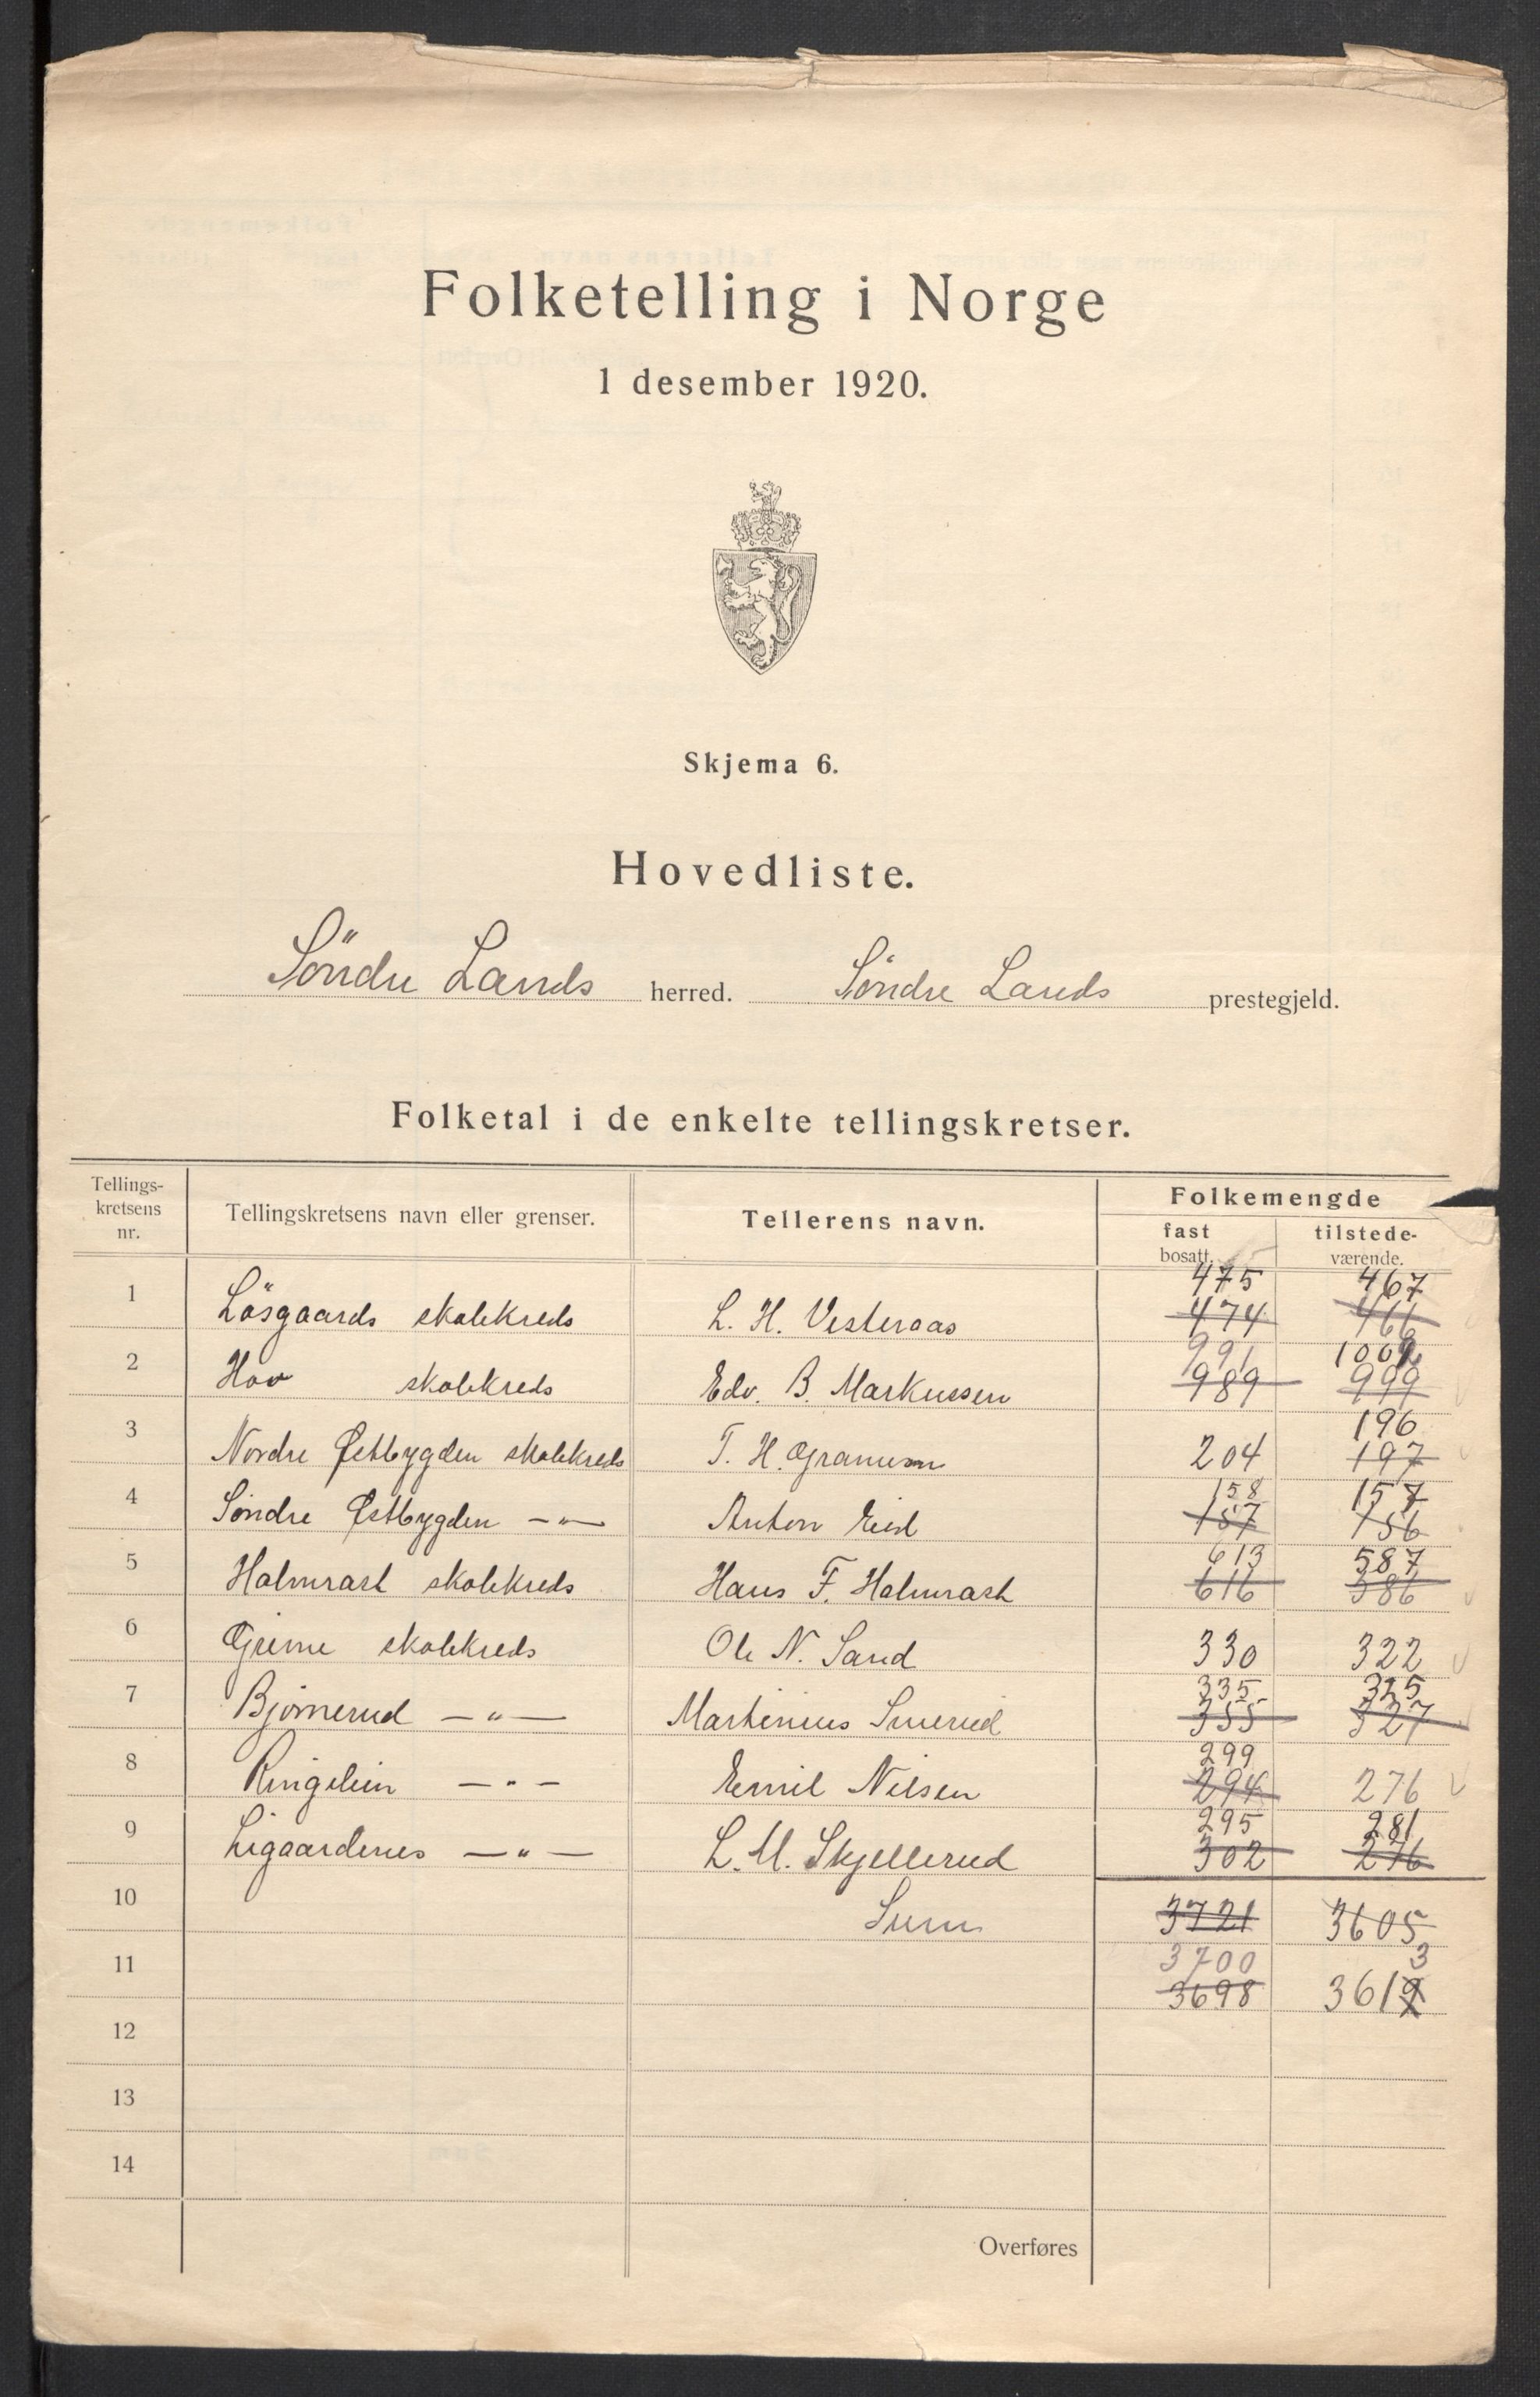 Folketelling i Norge
1 desember 1920.
Skjema 6.
Hovedliste.
Söndre Lands herred. Söndre Lands prestegjeld.
Folketal i de enkelte tellingskretser.
Tellings-
kretsens
nr.
Tellingskretsens navn eller grenser.
Tellerens navn.
Folkemengde
fast
bosatt.
tilstede-
værende.
475 467
1 Lösgaards skolekreds L. H. Vesteraas 474 466
991
2 Hov skolekreds Edv. B. Markussen 989 999
196
3 Nordre Østbygden skolekreds T. H. 204 197
158 157
4 Söndre Østbygden -"- Anton Eid 157 156
613 587
5 Holmrast skolekreds Hans F. Holmrast 616 586
6 Grime skolekreds Ole N. Sand 330 322
335 325
7 Bjørnerud -"- Martinius 355 327
299
8 Ringelien -"- Emil Nilsen 294 276
295 281
9 Ligaardenes -"- L. M. Skjellerud 302 276
10 Sum 3721 3605
3700 3
11 3698
12
13
14
Overføres